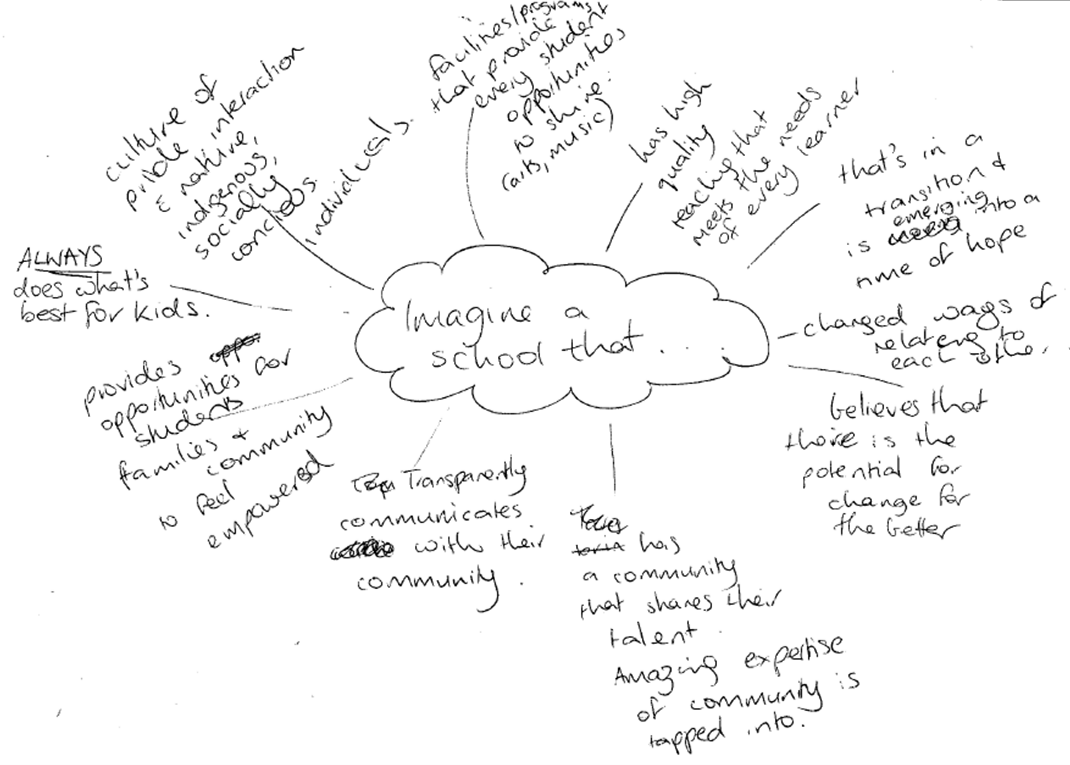 Imagine a
school that . . .
culture of
pride interaction
& nature,
indigenous,
socially
conscious.
individuals.
facilities/programs
that provide
every student
opportunities
to shine.
(arts, music)
has high
quality
teaching that
meets the needs
of every learner
that's in a
transition &
emerging
is into a
time of hope
changed ways of
relating to
each other.
believes that
there is the
potential for
change for
the better
has
a community
that shares their
talent.
Amazing expertise
of community is
tapped into.
Transparently
communicates
with their
community.
provides
opportunities for
students
families &
community
to feel
empowered
ALWAYS
does what's
best for kids.